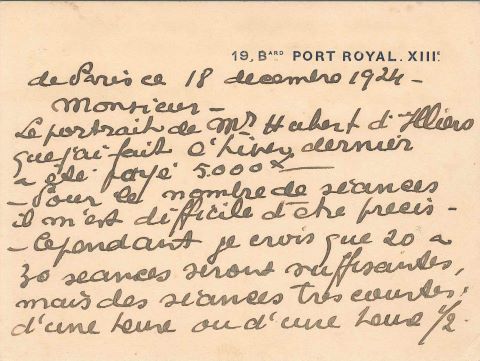 19, Bᴬᴿᴰ PORT ROYAL. XIIIᵉ
de Paris ce 18 decembre 1924 -
Monsieur -
Le portrait de Mr Hubert d'Illiers
que j'ai fait l'hiver dernier
a été payé 5.000 f
- Pour le nombre de séances
il m'est difficile d'etre precis -
- Cependant je crois que 20 a
30 seances seront suffisantes,
mais des séances tres courtes;
d'une heure ou d'une heure 1/2.